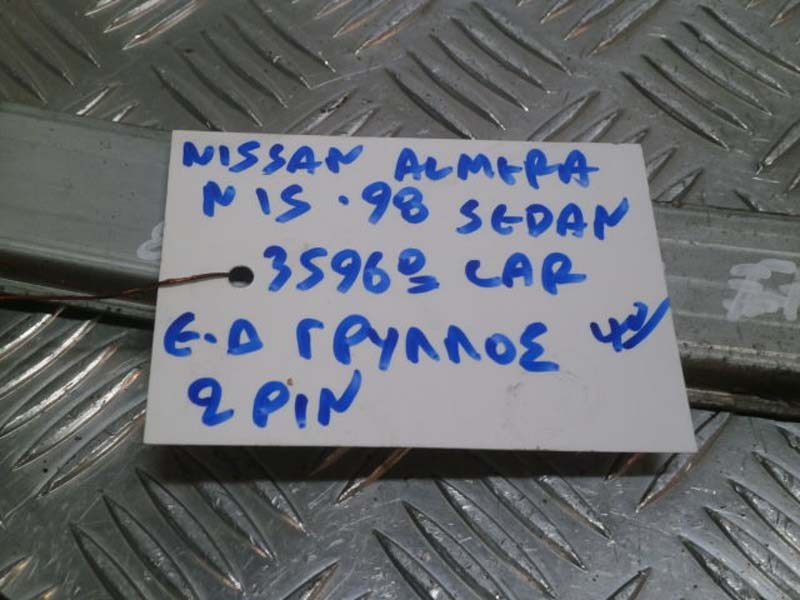 NISSAN ALMERA
N15 · 98 SEDAN
3596º CAR
Ε.Δ ΓΡΥΛΛΟΣ
2 PIN